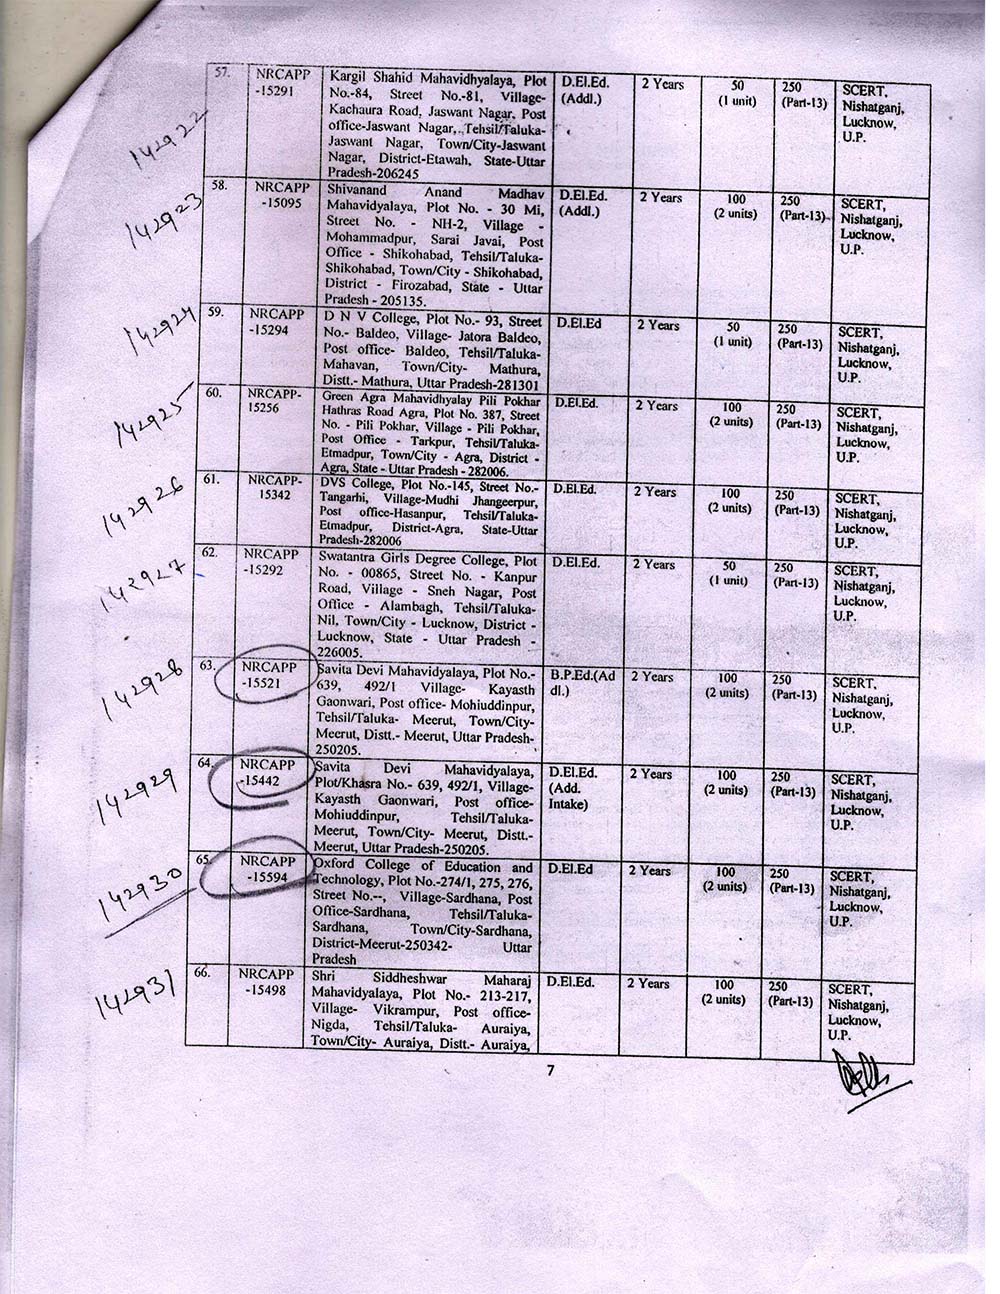 142922
57.
NRCAPP
-15291
Kargil Shahid Mahavidhyalaya, Plot
No.-84, Street No.-81, Village-
Kachaura Road, Jaswant Nagar, Post
office-Jaswant Nagar, Tehsil/Taluka-
Jaswant Nagar, Town/City-Jaswant
Nagar, District-Etawah, State-Uttar
Pradesh-206245
D.El.Ed.
(Addl.)
2 Years
50
(1 unit)
250
(Part-13)
SCERT,
Nishatganj,
Lucknow,
U.P.
142923
58.
NRCAPP
-15095
Shivanand Anand Madhav
Mahavidyalaya, Plot No. - 30 Mi,
Street No. - NH-2, Village -
Mohammadpur, Sarai Javai, Post
Office - Shikohabad, Tehsil/Taluka-
Shikohabad, Town/City - Shikohabad,
District - Firozabad, State - Uttar
Pradesh - 205135.
D.El.Ed.
(Addl.)
2 Years
100
(2 units)
250
(Part-13)
SCERT,
Nishatganj,
Lucknow,
U.P.
142924
59.
NRCAPP
-15294
D N V College, Plot No.- 93, Street
No.- Baldeo, Village- Jatora Baldeo,
Post office- Baldeo, Tehsil/Taluka-
Mahavan, Town/City- Mathura,
Distt.- Mathura, Uttar Pradesh-281301
D.El.Ed
2 Years
50
(1 unit)
250
(Part-13)
SCERT,
Nishatganj,
Lucknow,
U.P.
142925
60.
NRCAPP-
15256
Green Agra Mahavidhyalay Pili Pokhar
Hathras Road Agra, Plot No. 387, Street
No. - Pili Pokhar, Village - Pili Pokhar,
Post Office - Tarkpur, Tehsil/Taluka-
Etmadpur, Town/City - Agra, District -
Agra, State - Uttar Pradesh - 282006.
D.El.Ed.
2 Years
100
(2 units)
250
(Part-13)
SCERT,
Nishatganj,
Lucknow,
U.P.
142926
61.
NRCAPP-
15342
DVS College, Plot No.-145, Street No.-
Tangarhi, Village-Mudhi Jhangeerpur,
Post office-Hasanpur, Tehsil/Taluka-
Etmadpur, District-Agra, State-Uttar
Pradesh-282006
D.El.Ed.
2 Years
100
(2 units)
250
(Part-13)
SCERT,
Nishatganj,
Lucknow,
U.P.
142927
62.
NRCAPP
-15292
Swatantra Girls Degree College, Plot
No. - 00865, Street No. - Kanpur
Road, Village - Sneh Nagar, Post
Office - Alambagh, Tehsil/Taluka-
Nil, Town/City - Lucknow, District -
Lucknow, State - Uttar Pradesh -
226005.
D.El.Ed.
2 Years
50
(1 unit)
250
(Part-13)
SCERT,
Nishatganj,
Lucknow,
U.P.
142928
63.
NRCAPP
-15521
Savita Devi Mahavidyalaya, Plot No.-
639, 492/1 Village- Kayasth
Gaonwari, Post office- Mohiuddinpur,
Tehsil/Taluka- Meerut, Town/City-
Meerut, Distt.- Meerut, Uttar Pradesh-
250205.
B.P.Ed.(Ad
dl.)
2 Years
100
(2 units)
250
(Part-13)
SCERT,
Nishatganj,
Lucknow,
U.P.
142929
64.
NRCAPP
-15442
Savita Devi Mahavidyalaya,
Plot/Khasra No.- 639, 492/1, Village-
Kayasth Gaonwari, Post office-
Mohiuddinpur, Tehsil/Taluka-
Meerut, Town/City- Meerut, Distt.-
Meerut, Uttar Pradesh-250205.
D.El.Ed.
(Add.
Intake)
2 Years
100
(2 units)
250
(Part-13)
SCERT,
Nishatganj,
Lucknow,
U.P.
142930
65.
NRCAPP
-15594
Oxford College of Education and
Technology, Plot No.-274/1, 275, 276,
Street No.--, Village-Sardhana, Post
Office-Sardhana, Tehsil/Taluka-
Sardhana, Town/City-Sardhana,
District-Meerut-250342- Uttar
Pradesh
D.El.Ed
2 Years
100
(2 units)
250
(Part-13)
SCERT,
Nishatganj,
Lucknow,
U.P.
142931
66.
NRCAPP
-15498
Shri Siddheshwar Maharaj
Mahavidyalaya, Plot No.- 213-217,
Village- Vikrampur, Post office-
Nigda, Tehsil/Taluka- Auraiya,
Town/City- Auraiya, Distt.- Auraiya,
D.El.Ed.
2 Years
100
(2 units)
250
(Part-13)
SCERT,
Nishatganj,
Lucknow,
U.P.
7